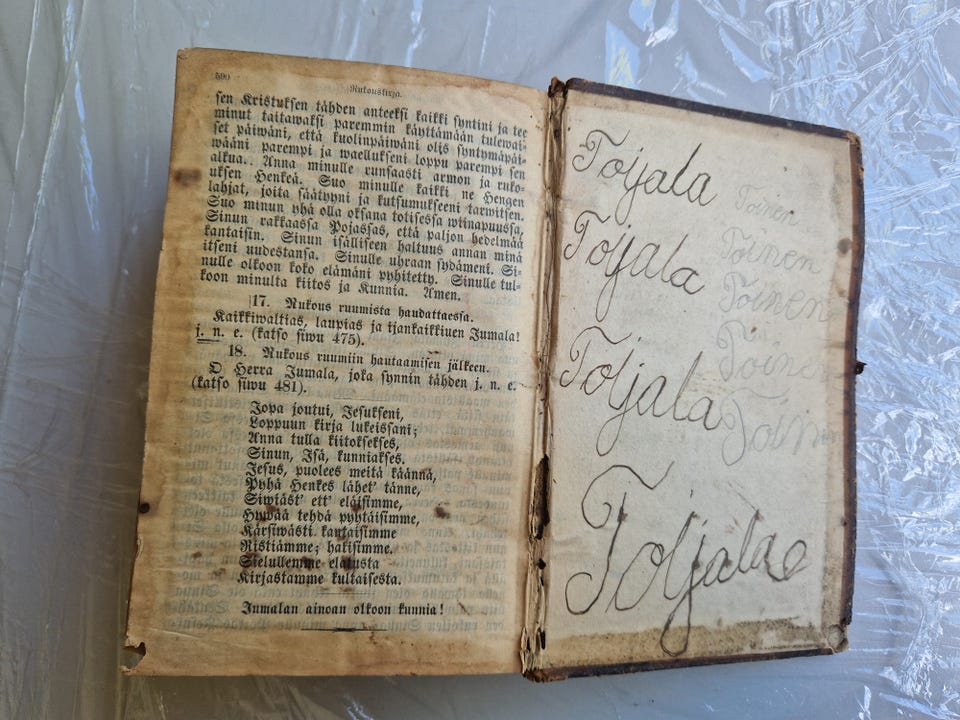 590
Rukouskirja.
sen Kristuksen tähden anteeksi kaikki syntini ja tee
minut taitawaksi paremmin käyttämään tulewai-
set päiwäni, että kuolinpäiwäni olis syntymäpäi-
wääni parempi ja waellukseni loppu parempi sen
alkua. Anna minulle runsaasti armon ja ruko-
uksen Henkeä. Suo minulle kaikki ne Hengen
lahjat, joita säätyyni ja kutsumukseeni tarwitsen.
Suo minun yhä olla oksana totisessa wiinapuussa,
Sinun rakkaassa Pojassas, että paljon hedelmää
kantaisin. Sinun isälliseen haltuus annan minä
itseni uudestansa. Sinulle uhraan sydämeni. Si-
nulle olkoon koko elämäni pyhitetty. Sinulle tul-
koon minulta kiitos ja Kunnia. Amen.
17. Rukous ruumista haudattaessa.
Kaikkiwaltias, laupias ja ijankaikkinen Jumala!
j. n. e. (katso siwu 475).
18. Rukous ruumiin hautaamisen jälkeen.
O Herra Jumala, joka synnin tähden j. n. e.
(katso siwu 481).
Jopa joutui, Jesukseni,
Loppuun kirja lukeissani;
Anna tulla kiitoksekses,
Sinun, Isä, kunniakses.
Jesus, puolees meitä käännä,
Pyhä Henkes lähet' tänne,
Siwiäst' ett' eläisimme,
Hywää tehdä pyytäisimme,
Kärsiwästi kantaisimme
Ristiämme; hakisimme.
Sielullemme elatusta
Kirjastamme kultaisesta.
Jumalan ainoan olkoon kunnia!
Toijala Toinen
Toijala Toinen
Toinen
Toijala Toinen
Toinen
Toijala